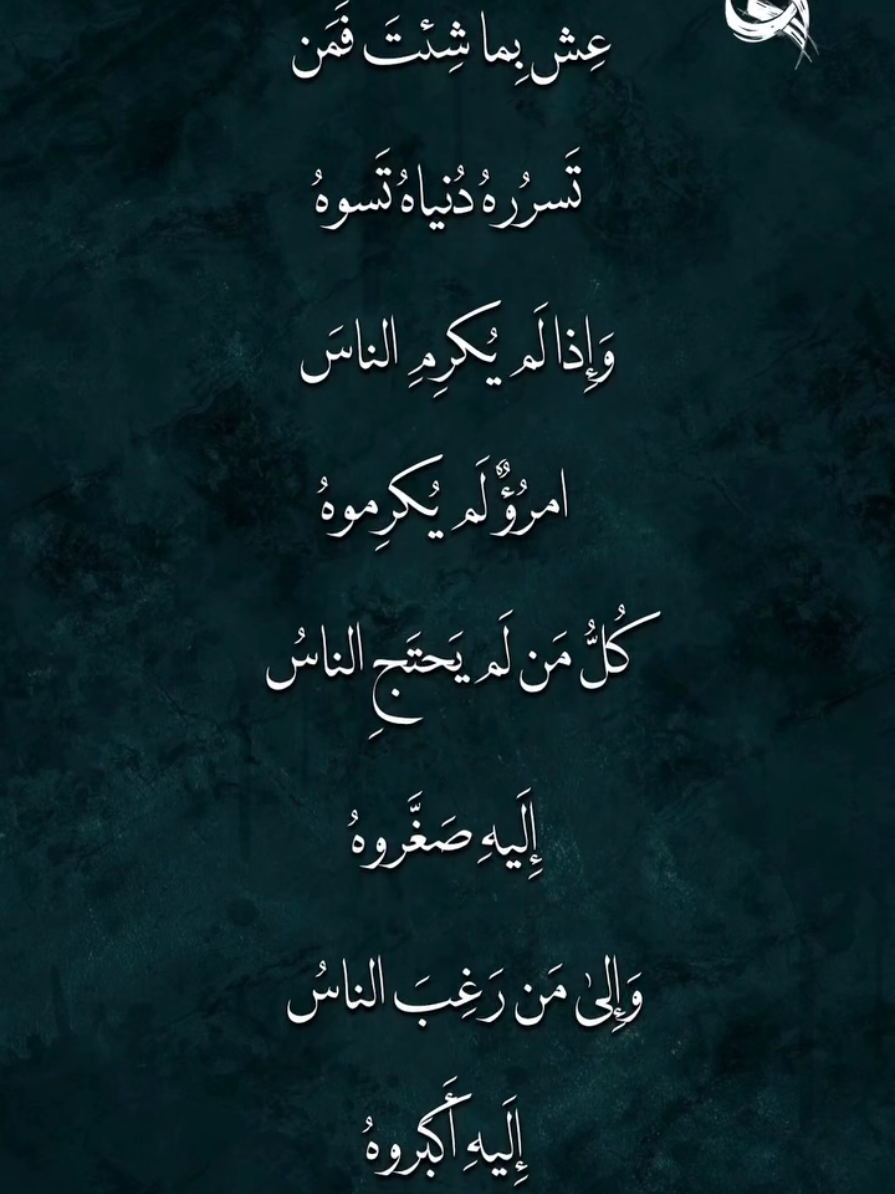 عِش بِما شِئتَ فَمَن
تَسرُرهُ دُنياهُ تَسوهُ
وَإِذا لَم يُكرِمِ الناسَ
امرُؤٌ لَم يُكرِموهُ
كُلُّ مَن لَم يَحتَجِ الناسُ
إِلَيهِ صَغَّروهُ
وَإِلى مَن رَغِبَ الناسُ
إِلَيهِ أَكبَروهُ